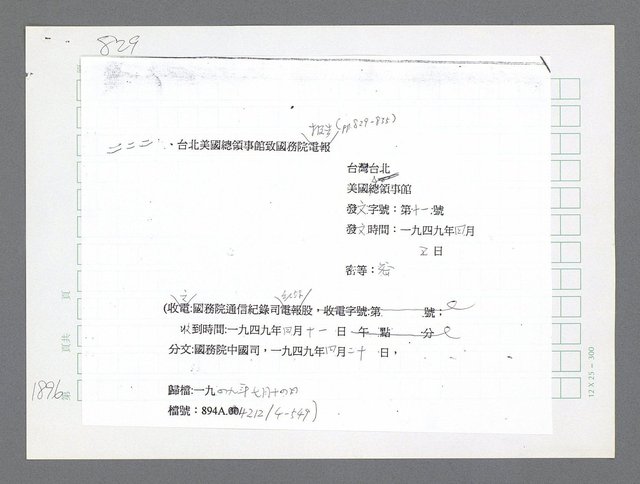 829
報告(pp.829-835)
二二二、台北美國總領事館致國務院電報
台灣台北
美國總領事館
發文字號：第十一號
發文時間：一九四九年四月
五日
密等：密
(收電:國務院通信紀錄司電報股，收電字號:第 號；
收到時間:一九四九年四月十一日 午 點 分
分文:國務院中國司，一九四九年四月二十日，
歸檔:一九四九年七月十四日
檔號：894A.00/4212(4-549)
頁
頁共
1896
第
12 X 25 = 300